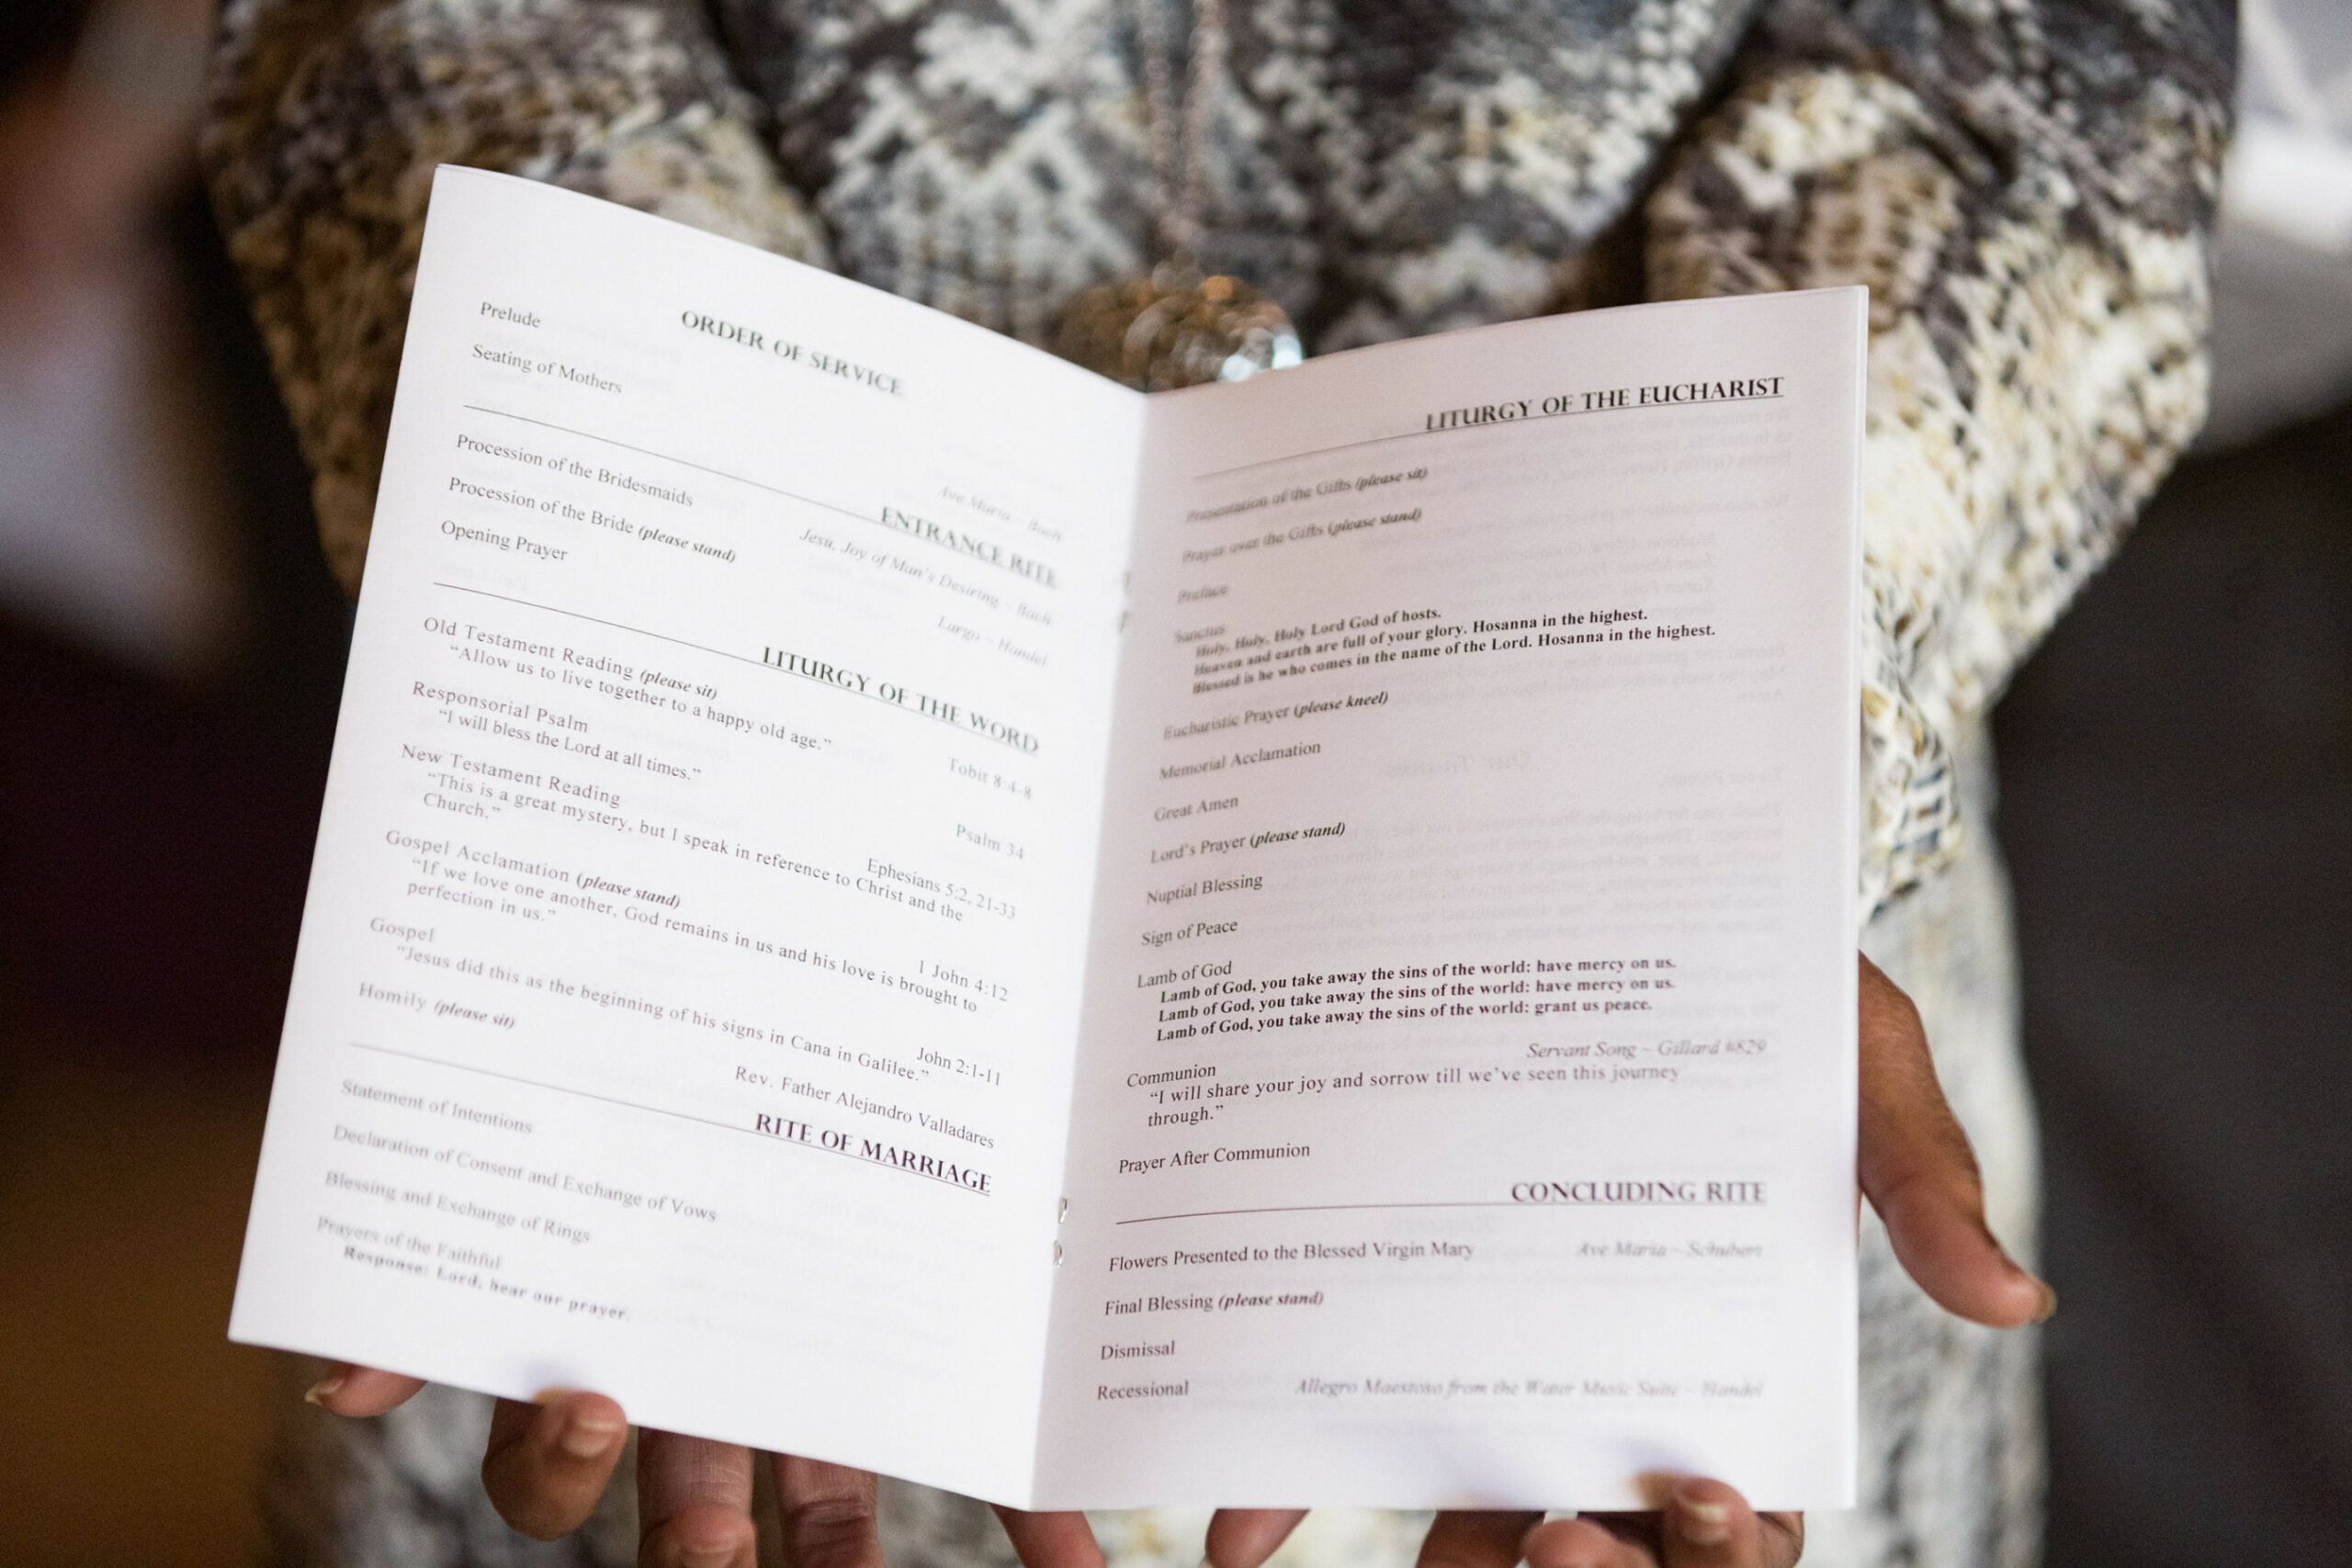 ORDER OF SERVICE
Prelude
Seating of Mothers Ave Maria ~ Bach
ENTRANCE RITE
Procession of the Bridesmaids Jesu, Joy of Man's Desiring ~ Bach
Procession of the Bride (please stand) Largo ~ Handel
Opening Prayer
LITURGY OF THE WORD
Old Testament Reading (please sit) Tobit 8:4-8
"Allow us to live together to a happy old age."
Responsorial Psalm Psalm 34
"I will bless the Lord at all times."
New Testament Reading Ephesians 5:2, 21-33
"This is a great mystery, but I speak in reference to Christ and the
Church."
Gospel Acclamation (please stand) 1 John 4:12
"If we love one another, God remains in us and his love is brought to
perfection in us."
Gospel John 2:1-11
"Jesus did this as the beginning of his signs in Cana in Galilee."
Homily (please sit) Rev. Father Alejandro Valladares
RITE OF MARRIAGE
Statement of Intentions
Declaration of Consent and Exchange of Vows
Blessing and Exchange of Rings
Prayers of the Faithful
Response: Lord, hear our prayer.
LITURGY OF THE EUCHARIST
Presentation of the Gifts (please sit)
Prayer over the Gifts (please stand)
Preface
Sanctus
Holy, Holy, Holy Lord God of hosts.
Heaven and earth are full of your glory. Hosanna in the highest.
Blessed is he who comes in the name of the Lord. Hosanna in the highest.
Eucharistic Prayer (please kneel)
Memorial Acclamation
Great Amen
Lord's Prayer (please stand)
Nuptial Blessing
Sign of Peace
Lamb of God
Lamb of God, you take away the sins of the world: have mercy on us.
Lamb of God, you take away the sins of the world: have mercy on us.
Lamb of God, you take away the sins of the world: grant us peace.
Communion Servant Song ~ Gillard #829
"I will share your joy and sorrow till we've seen this journey
through."
Prayer After Communion
CONCLUDING RITE
Flowers Presented to the Blessed Virgin Mary Ave Maria ~ Schubert
Final Blessing (please stand)
Dismissal
Recessional Allegro Maestoso from the Water Music Suite ~ Handel